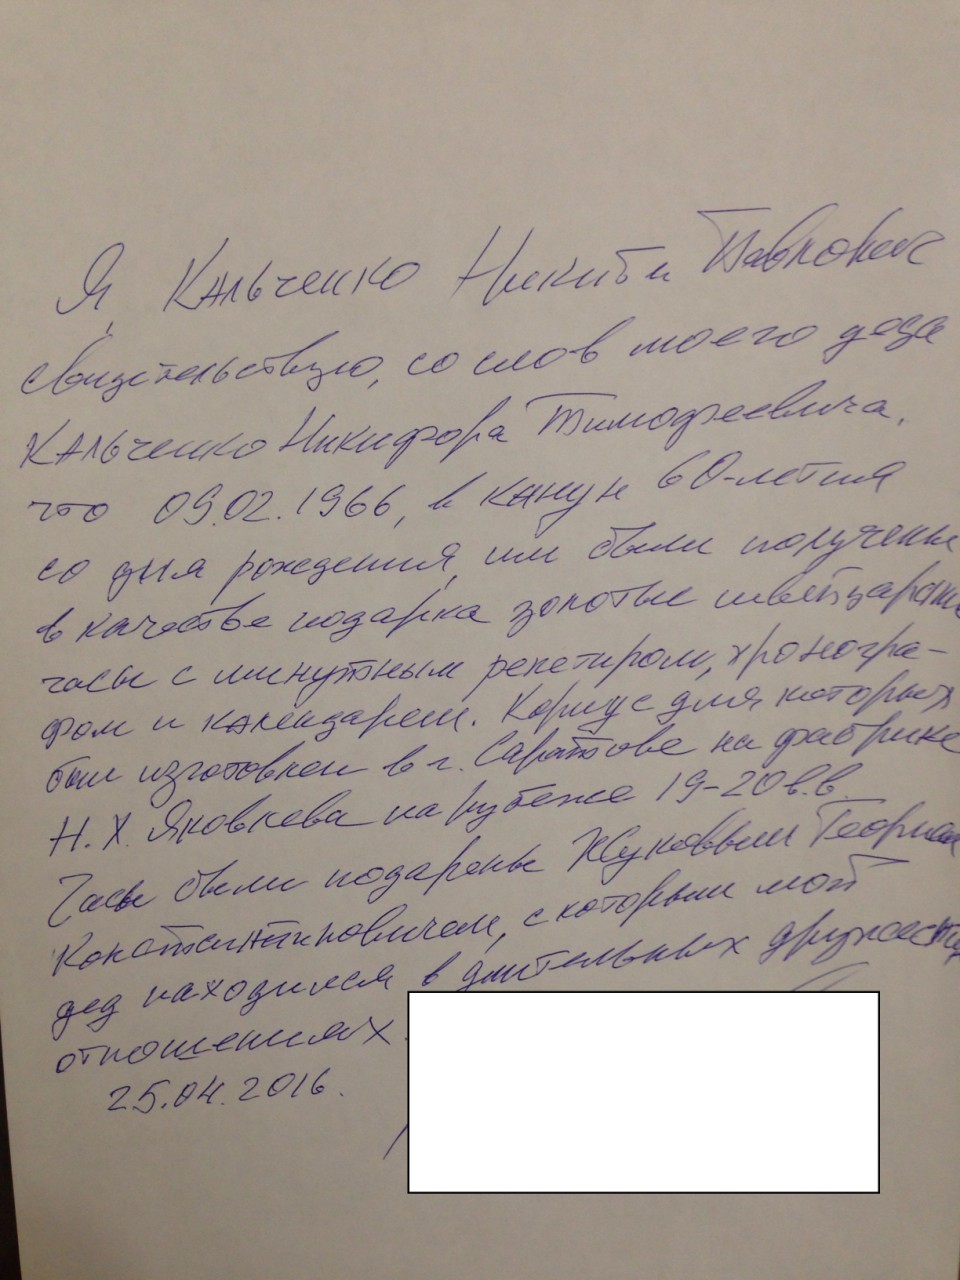 Я, Кальченко Никита Павлович
свидетельствую, со слов моего деда
Кальченко Никифора Тимофеевича,
что 09.02.1966, в канун 60-летия
со дня рождения, им были получены
в качестве подарка золотые швейцарские
часы с минутным репетиром, хроногра-
фом и календарем. Корпус для которых
был изготовлен в г. Саратове на фабрике
Н. Х. Яковлева на рубеже 19-20 в.в.
Часы были подарены Жуковым Георгием
Константиновичем, с которым мой
дед находился в длительных дружеских
отношениях.
25.04.2016.